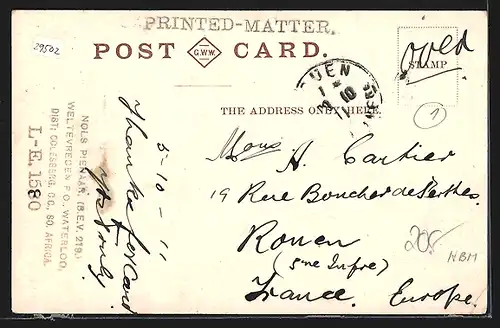 PRINTED-MATTER.
29502
POST G.W.W. CARD.
STAMP
THE ADDRESS ONLY HERE.
1
Mons A. Cartier
19 Rue Boucher de Perthes
Rouen
(Sne Infre)
France. Europe.
NBM
5-10-11
Thanks for card
NOLS PIENAAR, (B.E.V. 219),
WELTEVREDEN P.O., WATERLOO,
DIST: COLESBERG, C.C., SO. AFRICA.
L-E. 1580